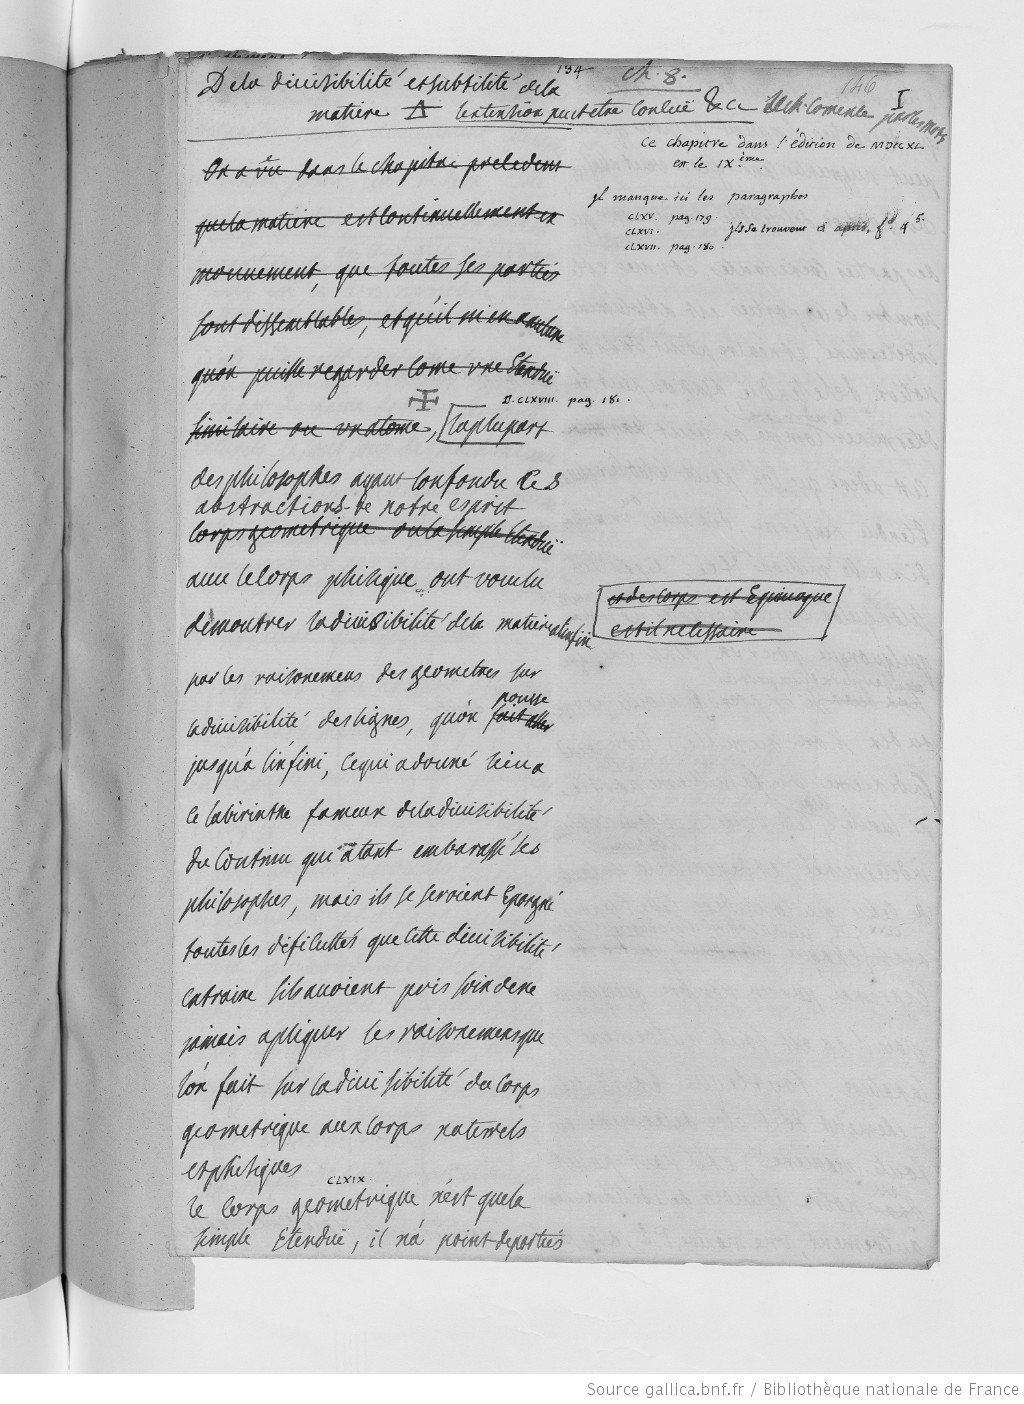 194
ch. 8.
146
I
De la divisibilité et subtilité de la
matiere A lextention peut etre conluë &c
par les mots
Ce chapitre dans l'édition de MDCCXL
est le IXème.
On a vû dans le chapitre precedent
que la matiere est continuellement en
mouvement, que toutes ses parties
sont dissemblables, et qu'il ni en a aucune
qu'on puisse regarder come une Etenduë
similaire ou un atome, la plupart
jl manque ici les paragraphes
CLXV. pag. 179.
CLXVI.
CLXVII. pag. 180.
jls se trouvent ci après, f.
§. CLXVIII. pag. 181.
des philosophes ayant confondu les
abstractions de notre esprit
corps geometrique ou la simple Etenduë
avec le corps phisique ont voulu
démontrer la divisibilité de la matiere a linfini
et des corps est Equivoque
et il necessaire
par les raisonemens des geometres sur
la divisibilité des lignes, qu'on pousse
fait aller
jusqu'a l'infini, ce qui a donné lieu a
ce labirinthe fameux de la divisibilité
du continu qui a tant embarassé les
philosophes, mais ils se seroient Epargné
toutes les dificultés que cette divisibilité
entraine sils avoient pris soin de ne
jamais apliquer les raisonemens que
lon fait sur la divisibilité du corps
geometrique aux corps naturels
et phisiques
CLXIX.
le corps geometrique n'est que la
simple Etenduë, il n'a point de parties
Source gallica.bnf.fr / Bibliothèque nationale de France